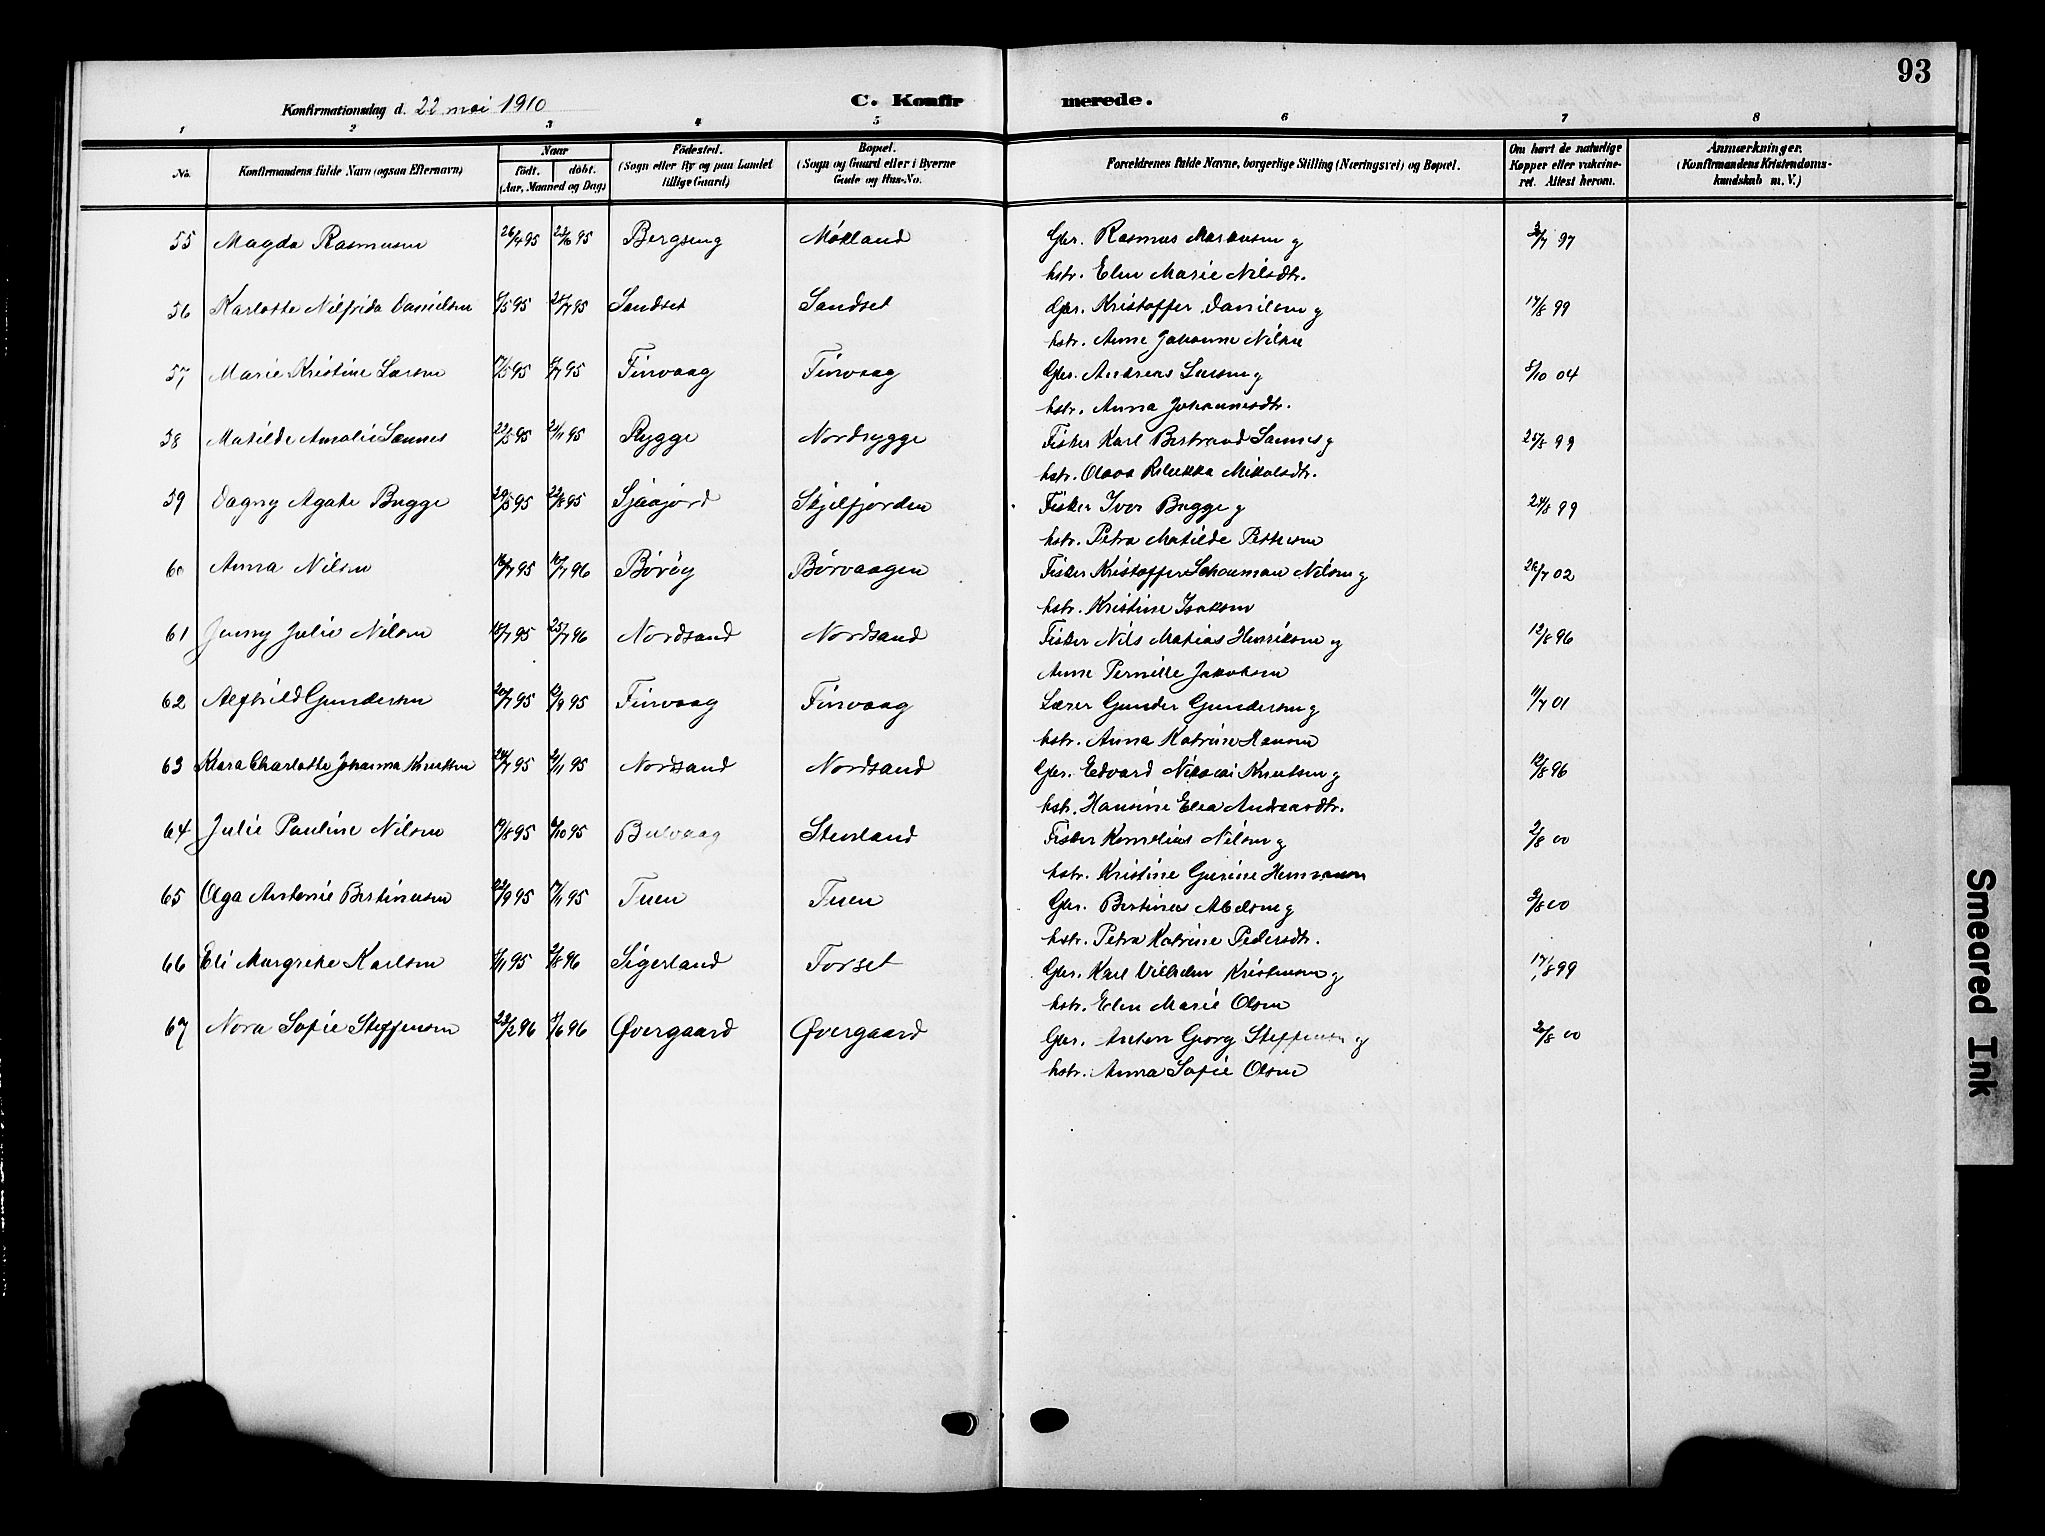 93
Konfirmationsdag d. 22 mai 1910
C. Konfir merede.
1 2 3 4 5 6 7 8
No. Konfirmandens fulde Navn (ogsaa Efternavn)
Naar
født. døbt.
(Aar, Maaned og Dag)
Födested.
(Sogn eller By og paa Landet
tillige Gaard)
Bopæl.
(Sogn og Gaard eller i Byerne
Gade og Hus-No.
Forældrenes fulde Navne, borgerlige Stilling (Næringsvei) og Bopæl.
Om havt de naturlige
Kopper eller vakcine-
ret. Attest herom.
Anmærkninger.
(Konfirmandens Kristendoms-
kundskab m. V.)
55 Magda Rasmusen 26/4 95 95 Bergseng Mokland Gbr. Rasmus g 97
hstr. Elen Marie Nilsdtr.
56 Karlotte Nilfrida Danielsen 95 95 Sandset Sandset Gbr. Kristoffer Danielsen g 17/8 99
hstr. Anne Johanne Nilsen
57 Marie Kristine Larsen 95 95 Finvaag Finvaag Gbr. Andreas Larsen g 8/10 04
hstr. Anna Johannesdtr.
58 Matilde Amalie Sannes 22/5 95 95 Rygge Nordrygge Fisker Karl Bertrand Sannes g 25/8 99
hstr. Olava Rebekka Mikalsdtr.
59 Dagny Agate Bugge 29/5 95 22/8 95 Sjaajord Skjelfjorden Fisker Ivor Bugge g 24/8 99
hstr. Petra Matilde Pettersen
60 Anna Nilsen 95 96 Børøy Børvaagen Fisker Kristoffer Schouman Nilsen g 26/7 02
hstr. Kristine Isaksen
61 Jenny Julie Nilsen 95 25/7 96 Nordsand Nordsand Fisker Nils Matias Henriksen g 12/8 96
Anne Pernille Jakobsen
62 Alfhild Gundersen 95 95 Finvaag Finvaag Lærer Gunder Gundersen g 11/7 01
hstr. Anna Katrine Hansen
63 Klara Charlotte Johanna Knutsen 24/7 95 95 Nordsand Nordsand Gbr. Edvard Nikolai Knutsen g 12/8 96
hstr. Hansine Elea Andreasdtr.
64 Julie Pauline Nilsen 95 95 Bulvaag Stenland Fisker Kornelius Nilsen g 2/8 00
hstr. Kristine Gurine Hermansen
65 Olga Antonie Bertinusen 22/9 95 95 Tuen Tuen Gbr. Bertinus Abelsen g 00
hstr. Petra Katrine Pedersdtr.
66 Eli Margrethe Karlsen 95 96 Sigerland Forset Gbr. Karl Vilhelm Kristensen g 17/8 99
hstr. Elen Marie Olsen
67 Nora Sofie Steffensen 23/2 96 96 Øvergaard Øvergaard Gbr. Anton Georg Steffensen g 00
hstr. Anna Sofie Olsen
Smeared Ink